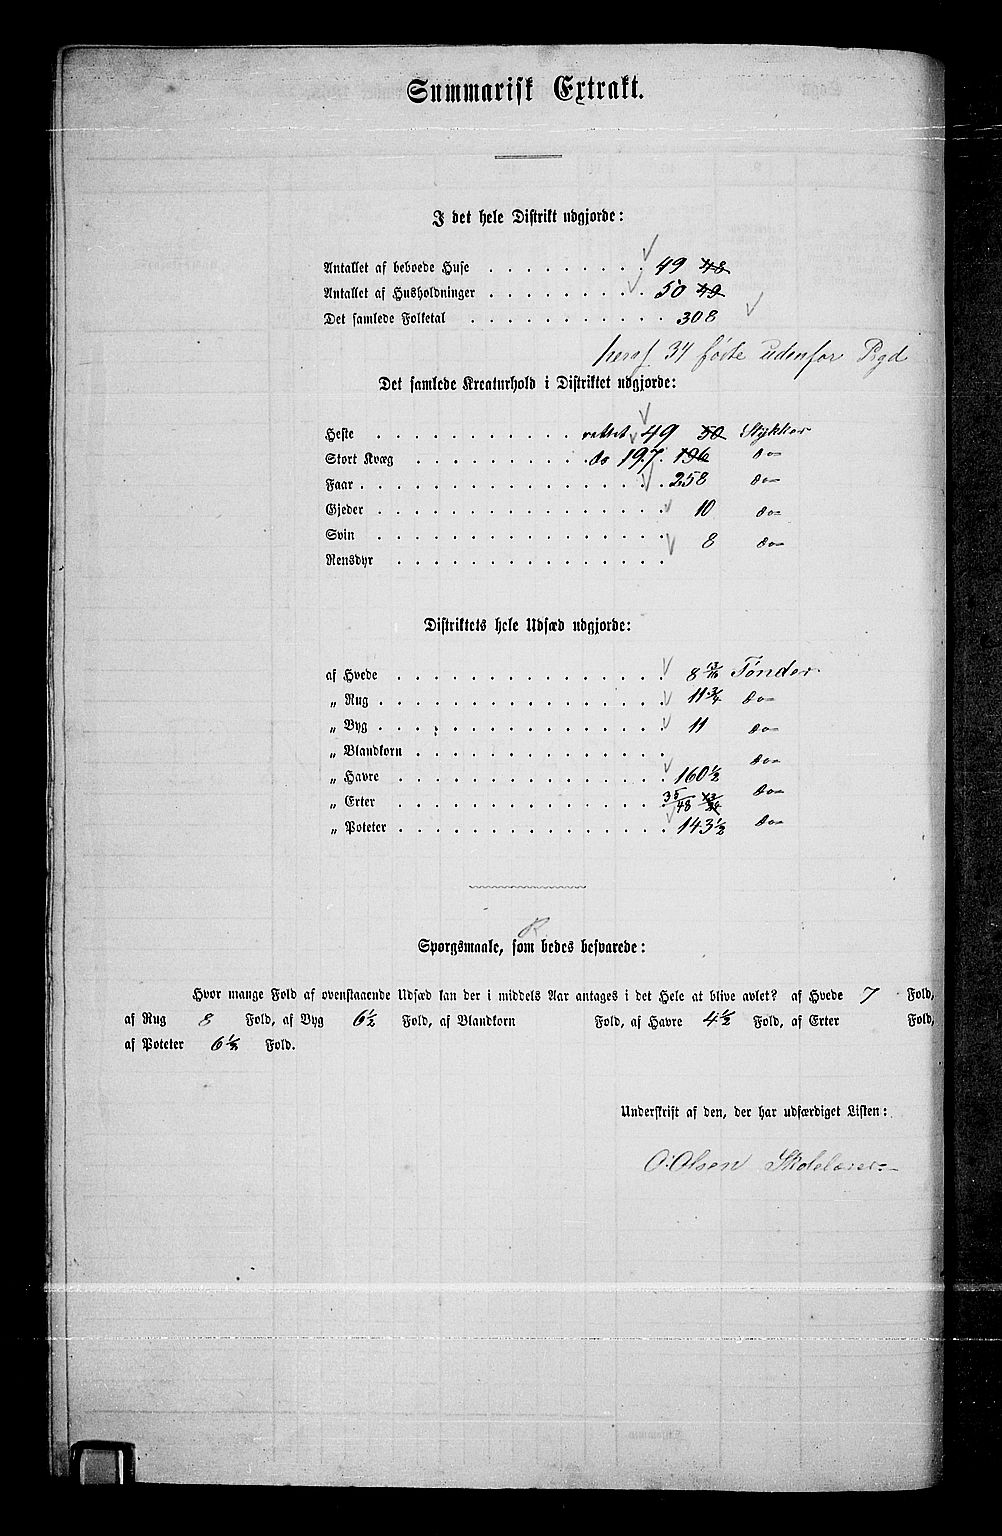 Summarisk Extrakt.
I det hele Distrikt udgjorde:
Antallet af beboede Huse . . . . . . . . . 49 48
Antallet af Husholdninger . . . . . . . . . 50 49
Det samlede Folketal . . . . . . . . . . . 308
heraf 34 fødte udenfor Prgd
Det samlede Kreaturhold i Distriktet udgjorde:
Heste . . . . . . . . . . . rettet 49 50 Stykker
Stort Kvæg . . . . . . . . . . do 197 196 do
Faar . . . . . . . . . . . . . . . . 258 do
Gjeder . . . . . . . . . . . . . . . 10 do
Svin . . . . . . . . . . . . . . . 8 do
Rensdyr . . . . . . . . . . . . . .
Distriktets hele Udsæd udgjorde:
af Hvede . . . . . . . . . . . . . . 8 Tønder
„ Rug . . . . . . . . . . . . . . . 11 3/4 do
„ Byg . . . . . . . . . . . . . . . 11 do
„ Blandkorn . . . . . . . . . . . . . do
„ Havre . . . . . . . . . . . . . . 160 1/2 do
„ Erter . . . . . . . . . . . . . . 35/48
„ Poteter . . . . . . . . . . . . . . 143 1/2 do
Spørgsmaale, som bedes besvarede:
Hvor mange Fold af ovenstaaende Udsæd kan der i middels Aar antages i det Hele at blive avlet? af Hvede 7 Fold,
af Rug 8 Fold, af Byg 6 1/2 Fold, af Blandkorn Fold, af Havre 4 1/2 Fold, af Erter Fold,
af Poteter 6 1/2 Fold.
Underskrift af den, der har udfærdiget Listen:
O. Olsen Skolelærer